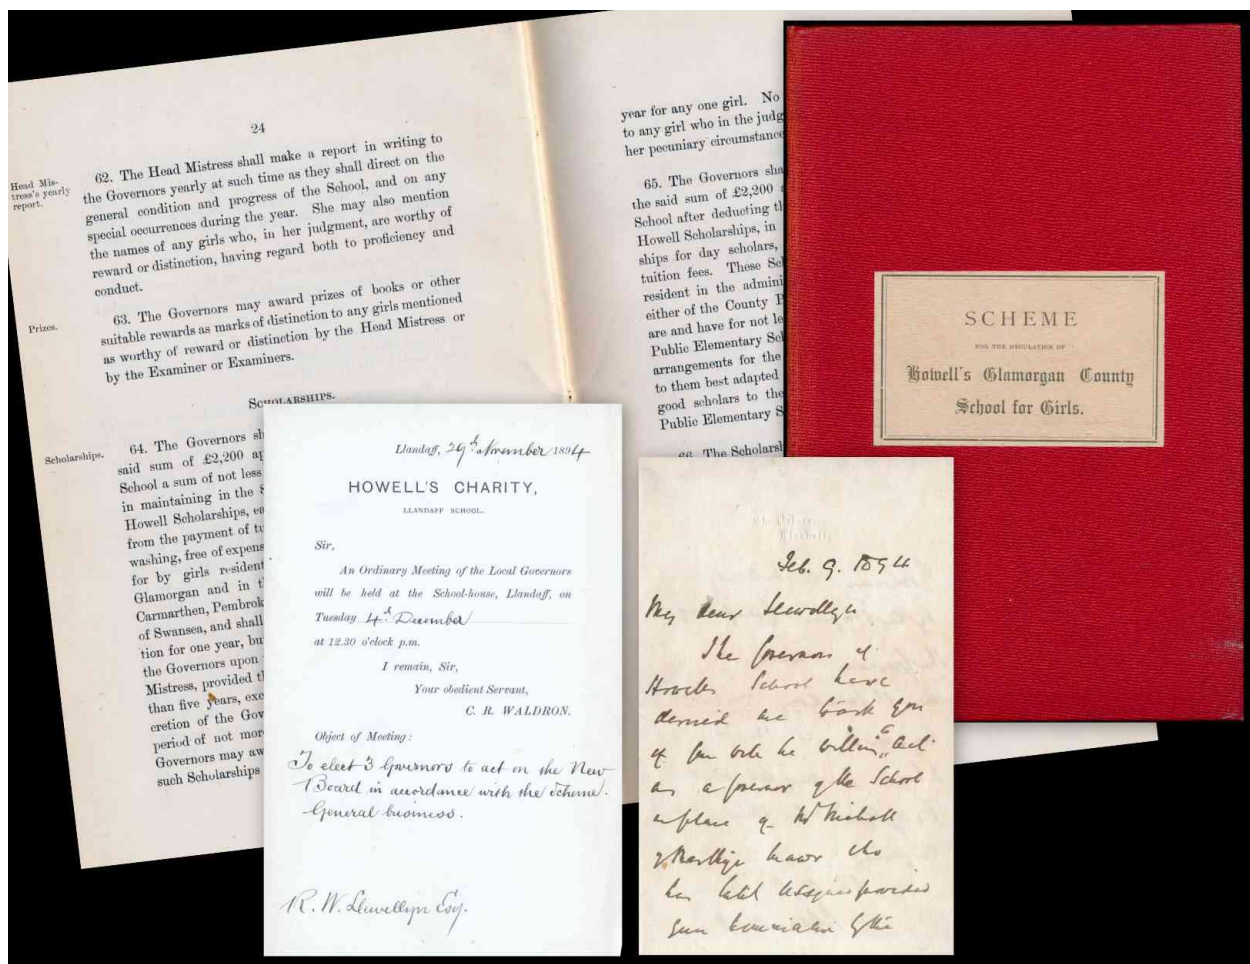 24
Head Mis-
tress's yearly
report.
62. The Head Mistress shall make a report in writing to
the Governors yearly at such time as they shall direct on the
general condition and progress of the School, and on any
special occurrences during the year. She may also mention
the names of any girls who, in her judgment, are worthy of
reward or distinction, having regard both to proficiency and
conduct.
Prizes.
63. The Governors may award prizes of books or other
suitable rewards as marks of distinction to any girls mentioned
as worthy of reward or distinction by the Head Mistress or
by the Examiner or Examiners.
SCHOLARSHIPS.
Scholarships.
64. The Governors sh
said sum of £2,200 ap
School a sum of not less
in maintaining in the S
Howell Scholarships, ea
from the payment of tu
washing, free of expens
for by girls resident
Glamorgan and in t
Carmarthen, Pembrok
of Swansea, and shall
tion for one year, bu
the Governors upon
Mistress, provided t
than five years, exc
cretion of the Gov
period of not mor
Governors may aw
such Scholarships
year for any one girl. No
to any girl who in the judg
her pecuniary circumstance
65. The Governors sha
the said sum of £2,200
School after deducting th
Howell Scholarships, in
ships for day scholars,
tuition fees. These Sc
resident in the admini
either of the County B
are and have for not le
Public Elementary Sc
arrangements for the
to them best adapted
good scholars to the
Public Elementary S
66. The Scholarsh
SCHEME
FOR THE REGULATION OF
Howell's Glamorgan County
School for Girls.
Llandaff, 29th November 1894
HOWELL'S CHARITY,
LLANDAFF SCHOOL.
Sir,
An Ordinary Meeting of the Local Governors
will be held at the School-house, Llandaff, on
Tuesday 4th December
at 12.30 o'clock p.m.
I remain, Sir,
Your obedient Servant,
C. R. WALDRON.
Object of Meeting:
To elect 3 Governors to act on the New
Board in accordance with the Scheme.
General business.
R. W. Llewellyn Esq.
Feb. 9. 1894
My dear Llewellyn
The Governors of
Howells School have
desired me to ask you
if you will be willing to act
as a governor of the School
in place of Mr Nicholl
who
has